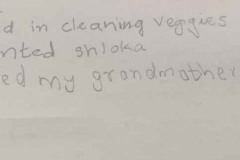 d in cleaning veggies
nted shloka
ed my grandmother